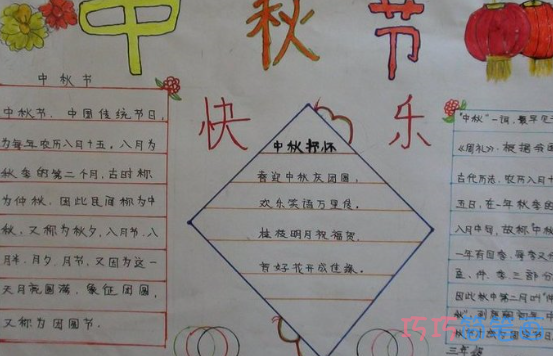 中秋节
快乐
中秋节
中秋节,中国传统节日,
为每年农历八月十五。八月为
秋季的第二个月,古时称
为仲秋,因此民间称为中
秋,又称为秋夕,八月节,八
月半,月夕,月节,又因为这一
天月亮圆满,象征团圆,
又称为团圆节。
中秋抒怀
喜迎中秋庆团圆,
欢乐笑语万里传。
桂枝明月祝福贺,
百好花开成佳缘。
"中秋"一词,最早
《周礼》,根据
古代历法,农历八月十
五日,在一年秋季的
八月中旬,故称中秋
一年有四季,每季又分
孟,仲,季三部分
因此秋中第二月叫"仲
秋"
三年级
巧巧